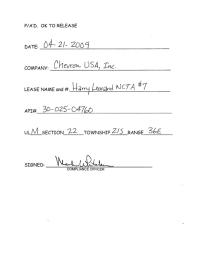 P/A'D. OK TO RELEASE
DATE: 04-21-2009
COMPANY: Chevron USA, Inc.
LEASE NAME and #: Harry Leonard NCTA #7
API# 30-025-04760
UL M SECTION 22 TOWNSHIP 21S RANGE 36E
SIGNED:
COMPLIANCE OFFICER